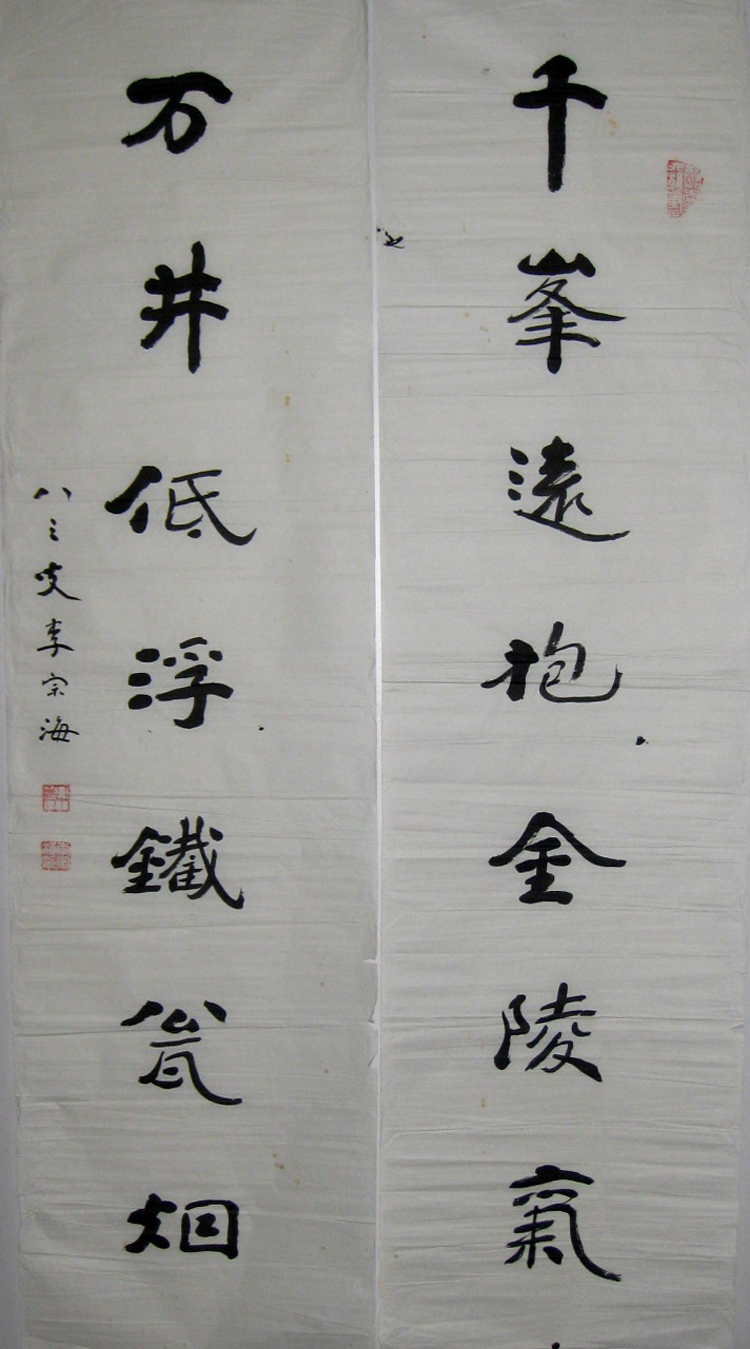 千峯遠抱金陵氣
万井低浮鐵瓮烟
八三叟李宗海